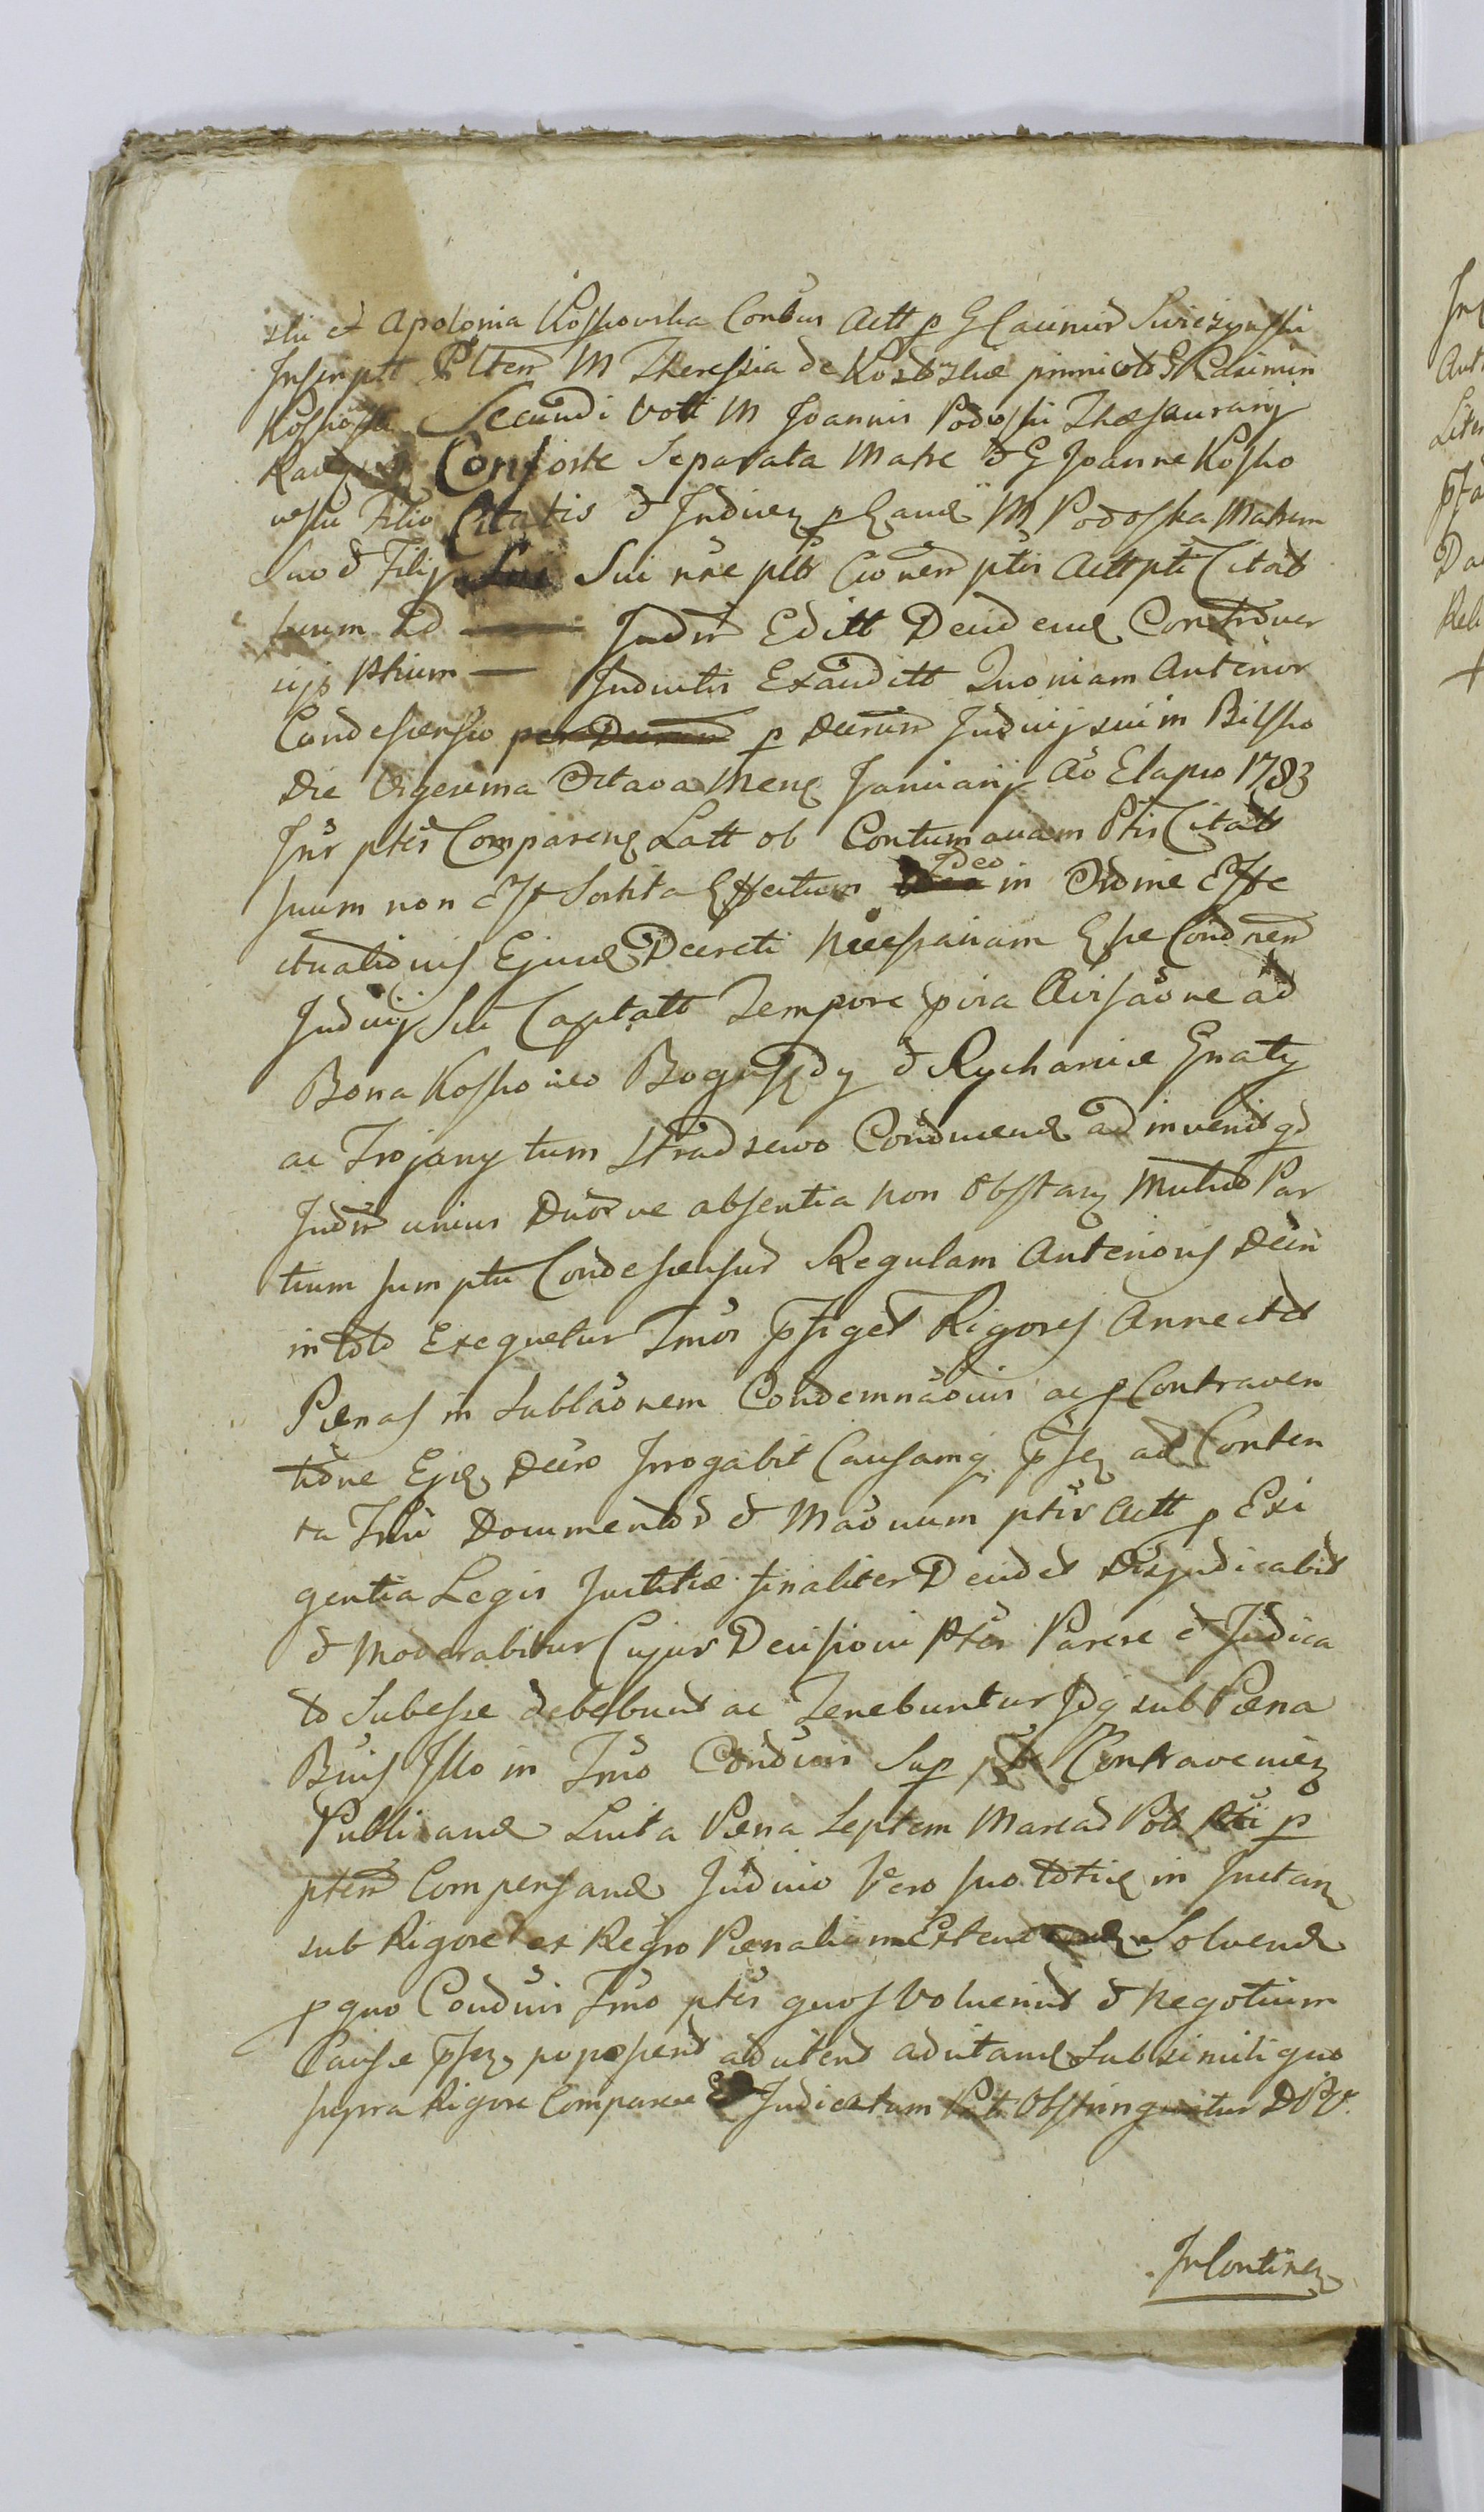 ski et Apolonia Koskowska Contus Actt p G Casimir Swiezynski
Inscriptt Pltem M Theressia de primi voti G Casimiri
Koskowski Secundi Voti M Joannis Podoski Thesaurarij
Consorte Separata Matre et G Joanne Kosko
wski Filio Citatis et Judicz p Gand M Podoska Matrem
Suo et Filij Sui nõe pltr ptis Actt pti Citat
suum ad Judm Editt Decidend Controver
sijs Ptium Judicitis Exauditt Quoniam Anterior
Condescensio per Decrum p Decrum Judicij sui in Bilsko
Die Vigesima Octava Mens Januarij Ao Elapso 1783
Inr ptes Comparens Latt ob Contumaciam Ptis Citat
suum non Est Sortita Effectum Ideo in Ordine Effe
ctuationis Ejusd Decreti Necessariam Esse Condnem
Judicij Sui Captatt Tempore Avisaõne ad
Bona Koskowo Boguszdy et Rychanice Gnaty
ac Trojany tum Stradzewo Conducend adinvenit qd
Judm unius Duorve absentia non Obstan Mutuo Par
tium sumptu Condescensur Regulam Anterioris Decri
in toto Exequetur Tmor pfiget Rigores Annectet
Pænas in Sublaõnem Condemnaõnis ac p Contraven
tiõne Ejd Decro Irrogabit Causamq pscz ad Conten
ta Documentor et Maõnum ptis Actt p Exi
gentia Legis Justitiæ finaliter Decidet Disjudicabit
et Moderabitur Cujus Decisioni Ptes Parere et Judica
to Subesse debebunt ac Tenebuntur Idq sub Pæna
Bnis Illo in Tmo Condnis Sup pte Contravenien
Publicand Luita Pæna Septem Marcar Pol pti p
ptem Compensand Judicio Vero suo toties in Instan
sub Rigore ex Regro Pænalium Extend Solvend
p quo Condnis Tmo ptes quos Voluerint et Negotium
Causæ pscz poposcerit adcitent adcitand Sub simili quo
supra Rigore Comparere Et Judicatum Pati Obstringuntur DPV.
In Continen